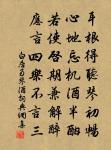 耳根得聽琴初暢
心地忘機酒半酣
若使啓期兼解醉
應言四樂不言三
白居易琴酒詞典網